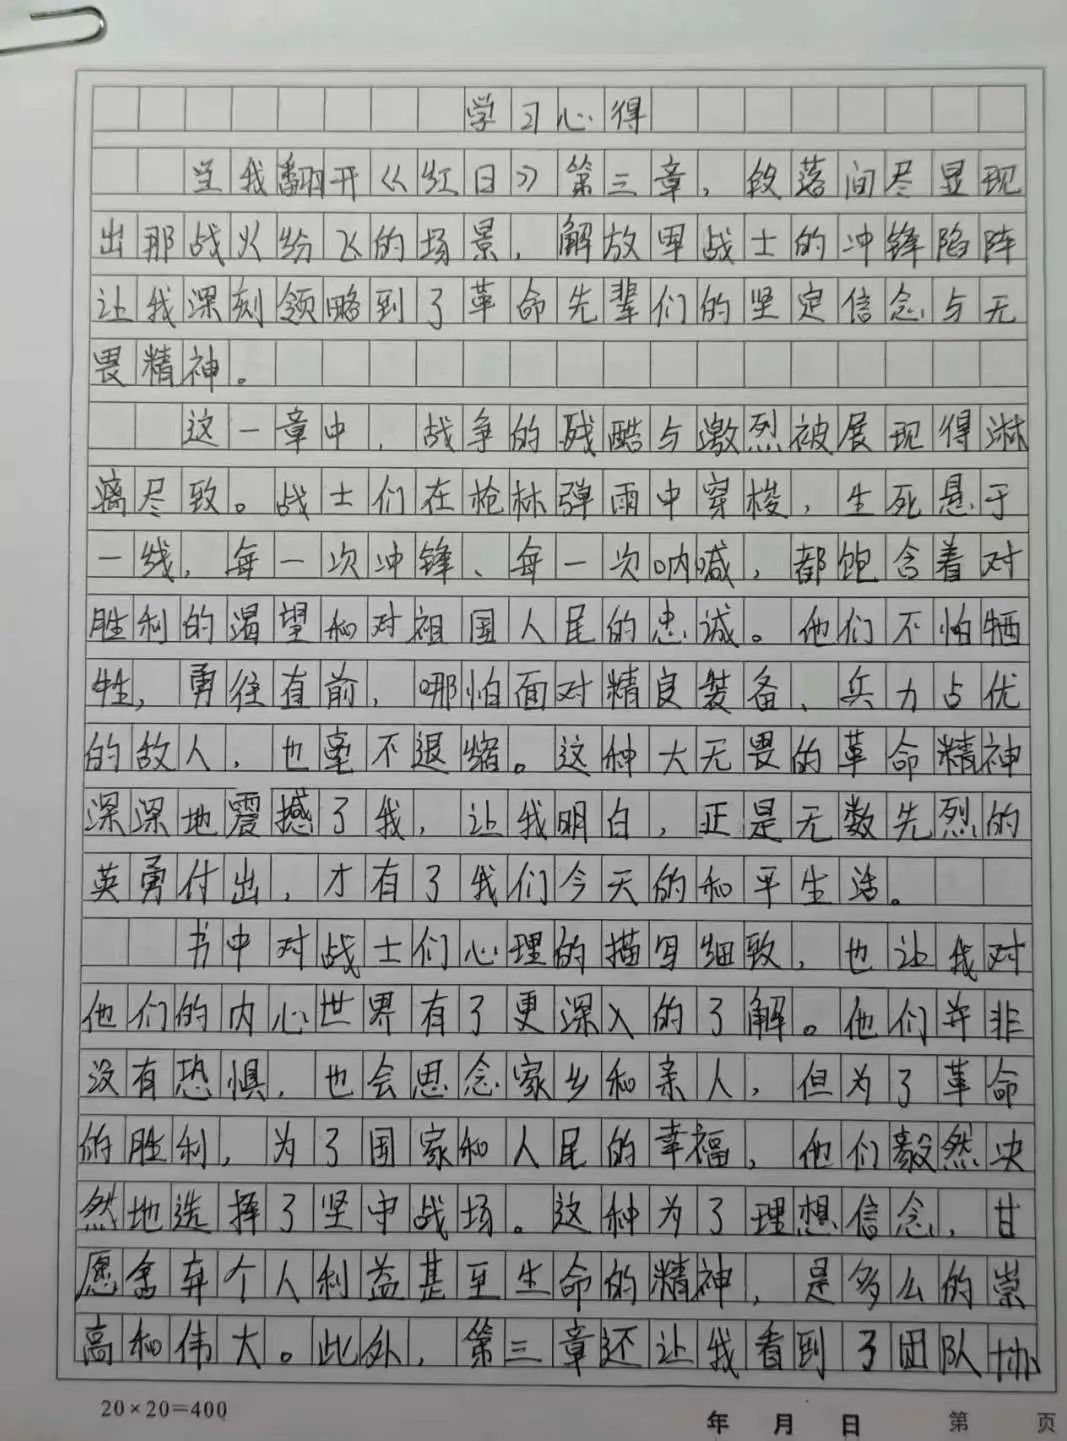 学习心得
当我翻开《红日》第三章，段落间尽显现
出那战火纷飞的场景，解放军战士的冲锋陷阵
让我深刻领略到了革命先辈们的坚定信念与无
畏精神。
这一章中，战争的残酷与激烈被展现得淋
漓尽致。战士们在枪林弹雨中穿梭，生死悬于
一线，每一次冲锋、每一次呐喊，都饱含着对
胜利的渴望和对祖国人民的忠诚。他们不怕牺
牲，勇往直前，哪怕面对精良装备、兵力占优
的敌人，也毫不退缩。这种大无畏的革命精神
深深地震撼了我，让我明白，正是无数先烈的
英勇付出，才有了我们今天的和平生活。
书中对战士们心理的描写细致，也让我对
他们的内心世界有了更深入的了解。他们并非
没有恐惧，也会思念家乡和亲人，但为了革命
的胜利，为了国家和人民的幸福，他们毅然决
然地选择了坚守战场。这种为了理想信念，甘
愿舍弃个人利益甚至生命的精神，是多么的崇
高和伟大。此外，第三章还让我看到了团队协
20×20=400
年 月 日 第 页